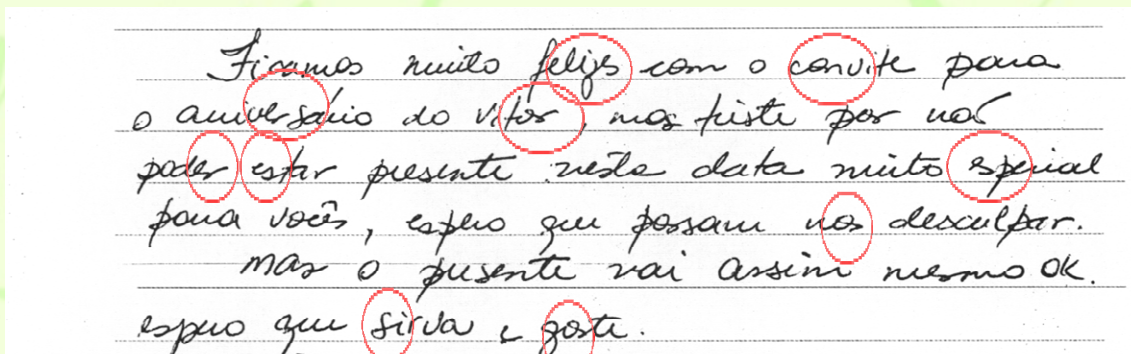 Ficamos muito felizes com o convite para
o aniversário do vitor, mas triste por não
poder estar presente nesta data muito especial
para vocês, espero que possam nos desculpar.
mas o presente vai assim mesmo OK.
espero que sirva e goste.